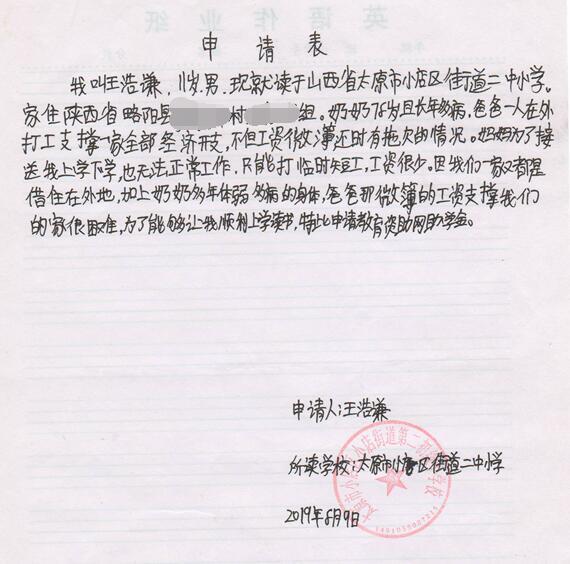 申请表
我叫王浩谦，11岁，男，现就读于山西省太原市小店区街道二中小学。
家住陕西省略阳县 村 组。奶奶76岁且长年多病，爸爸一人在外
打工支撑一家全部经济开支，不但工资微薄还时有拖欠的情况。妈妈为了接
送我上学下学，也无法正常工作，只能打临时短工，工资很少。因我们一家又都是
借住在外地，加上奶奶多年体弱多病的身体，爸爸那微薄的工资支撑我们
的家很困难，为了能够让我顺利上学读书，特此申请教育资助网助学金。
申请人：王浩谦
所读学校：太原市小店区街道二中小学
2019年6月9日